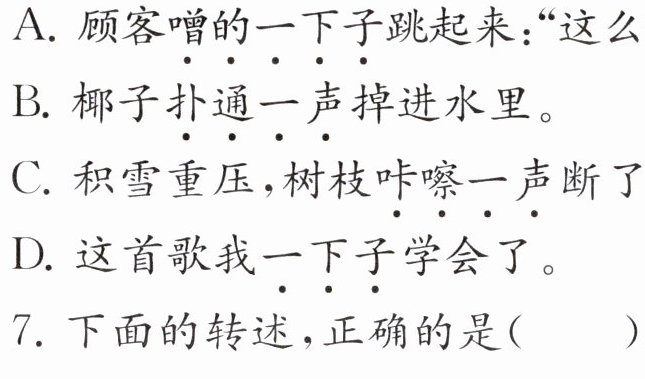 A. 顾客噌的一下子跳起来:“这么
B. 椰子扑通一声掉进水里。
C. 积雪重压,树枝咔嚓一声断了
D. 这首歌我一下子学会了。
7. 下面的转述,正确的是(　　)